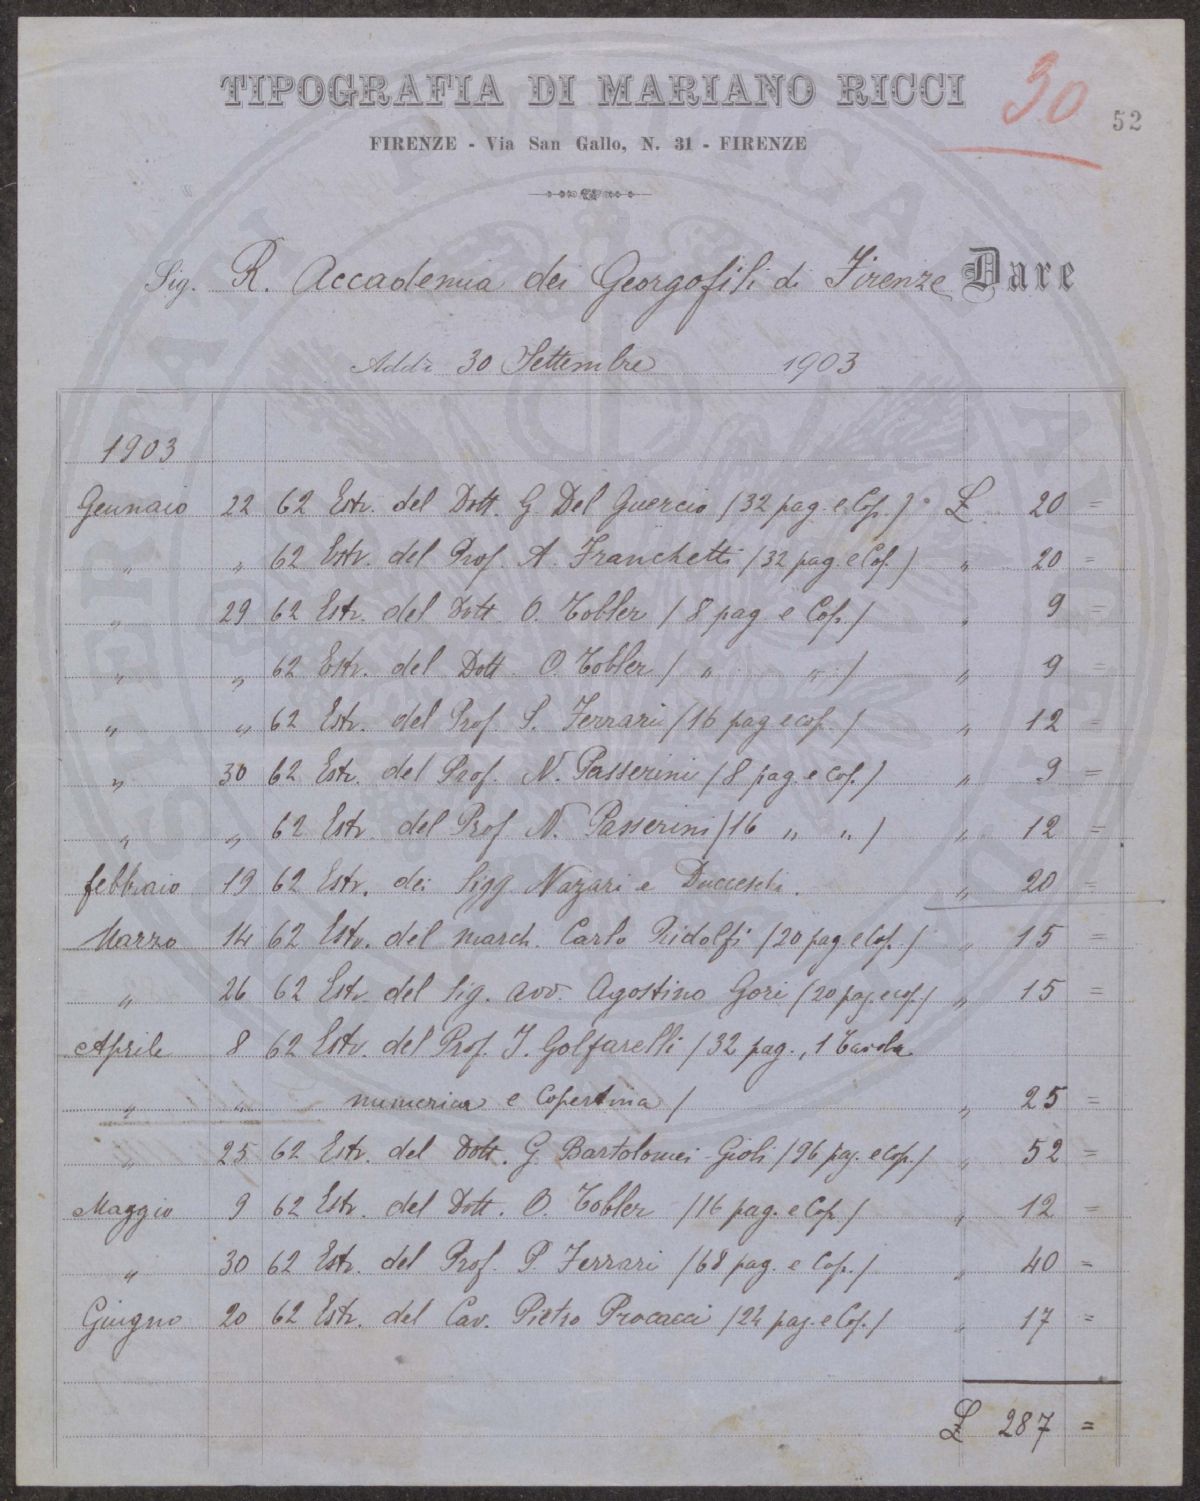 TIPOGRAFIA DI MARIANO RICCI
30
52
FIRENZE - Via San Gallo, N. 31 - FIRENZE
Sig. R. Accademia dei Georgofili di Firenze Dare
Addì 30 Settembre 1903
1903
Gennaio 22 62 Estr. del Dott. G. Del Guercio (32 pag. e Cop.) £ 20 =
" " 62 Estr. del Prof. A. Franchetti (32 pag. e Cop.) " 20 =
" 29 62 Estr. del Dott. O. Tobler (8 pag e Cop.) " 9 =
" " 62 Estr. del Dott. O. Tobler ( " " ) " 9 =
" " 62 Estr. del Prof. P. Ferrari (16 pag e cop.) " 12 =
" 30 62 Estr. del Prof. N. Passerini (8 pag. e Cop.) " 9 =
" " 62 Estr. del Prof. N. Passerini (16 " " ) " 12 =
febbraio 19 62 Estr. dei Sigg Nazari e Ducceschi. " 20 =
Marzo 14 62 Estr. del march. Carlo Ridolfi (20 pag. e Cop.) " 15 =
" 26 62 Estr. del Sig. avv. Agostino Gori (20 pag. e cop.) " 15 =
Aprile 8 62 Estr. del Prof. I. Golfarelli (32 pag., 1 Tavola
" " numerica e Copertina) " 25 =
" 25 62 Estr. del Dott. G. Bartolomei-Gioli (96 pag. e Cop.) " 52 =
Maggio 9 62 Estr. del Dott. O. Tobler (16 pag. e Cop) " 12 =
" 30 62 Estr. del Prof. P. Ferrari (68 pag. e Cop.) " 40 =
Giugno 20 62 Estr. del Cav. Pietro Procacci (24 pag. e Cop.) " 17 =
£ 287 =